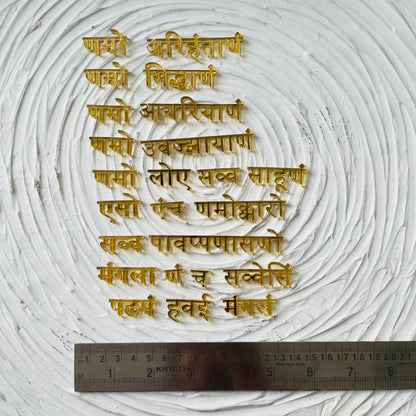 णमो अरिहंताणं
णमो सिद्धाणं
णमो आयरियाणं
णमो उवज्झायाणं
णमो लोए सव्व साहूणं
एसो पंच णमोक्कारो
सव्व पावप्पणासणो
मंगला णं च सव्वेसिं
पढमं हवई मंगलं
1 2 3 4 5 6 7 8 9 10 11 12 13 14 15 16 17 18 19 20 21
1 2 KHYATI 3 4 5 6 7 8